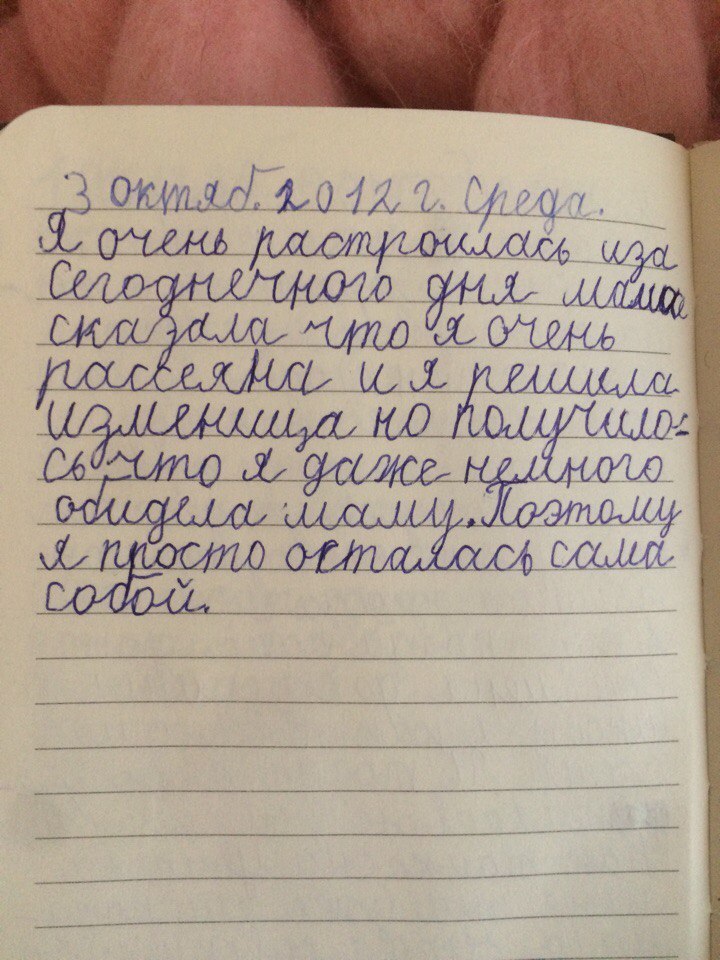 3 октяб. 2012 г. Среда.
Я очень растроилась иза
Сегоднечного дня мама
сказала что я очень
рассеяна и я решила
изменища но получило=
сь что я даже немного
обидела маму. Поэтому
я просто осталась сама
собой.